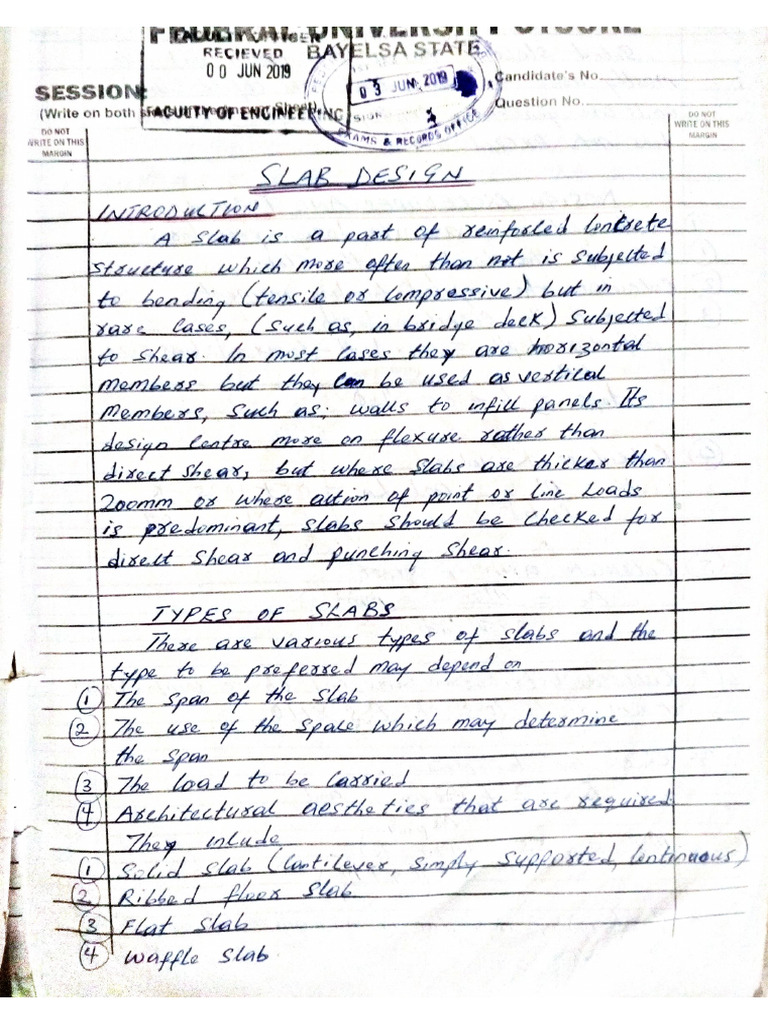 FEDERAL UNIVERSITY OTUOKE
BAYELSA STATE
FACULTY OFFICER
RECIEVED
00 JUN 2019
FACULTY OF ENGINEERING
03 JUN 2019
EXAMS & RECORDS OFFICE
SESSION:
(Write on both
Candidate's No.
Question No.
DO NOT
WRITE ON THIS
MARGIN
DO NOT
WRITE ON THIS
MARGIN
SLAB DESIGN
INTRODUCTION
A slab is a part of reinforced concrete
structure which more often than not is subjected
to bending (tensile or compressive) but in
rare cases, (such as, in bridge deck) subjected
to shear. In most cases they are horizontal
members but they can be used as vertical
members, such as; walls to infill panels. Its
design centre more on flexure rather than
direct shear, but where slabs are thicker than
200mm or where action of point or line loads
is predominant, slabs should be checked for
direct shear and punching shear.
TYPES OF SLABS
There are various types of slabs and the
type to be preferred may depend on
1 The span of the slab
2 The use of the space which may determine
the span
3 The load to be carried
4 Architectural aesthetics that are required
They inlude
1 Solid slab (Cantilever, simply supported, continuous)
2 Ribbed floor slab
3 Flat slab
4 Waffle slab.